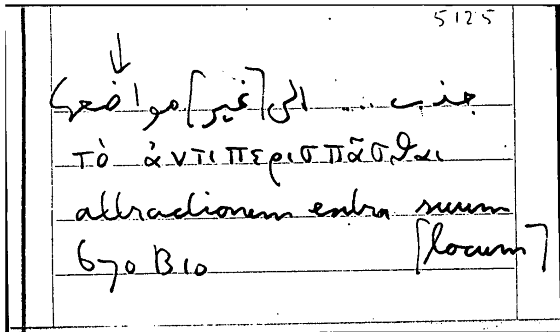 5125
↓
جذب ... الى [غير] مواضعها
τὸ ἀντιπερισπᾶσθαι
attractionem extra suum
670 B10 [locum]